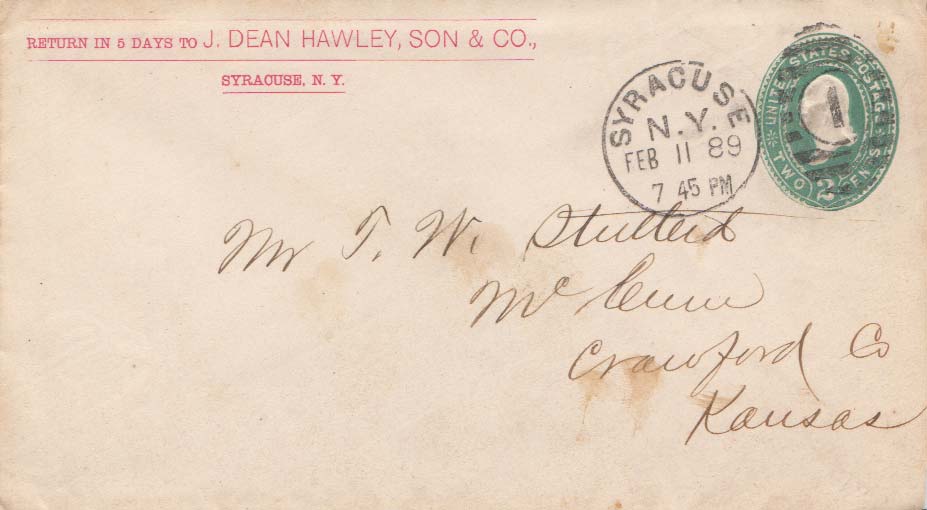 RETURN IN 5 DAYS TO J. DEAN HAWLEY, SON & CO.,
SYRACUSE, N. Y.
SYRACUSE
N.Y.
FEB 11 89
7 45 PM
UNITED STATES POSTAGE
TWO 2 CENTS
1
Mr T. W. Stutterd
Mc Cune
Crawford Co
Kansas